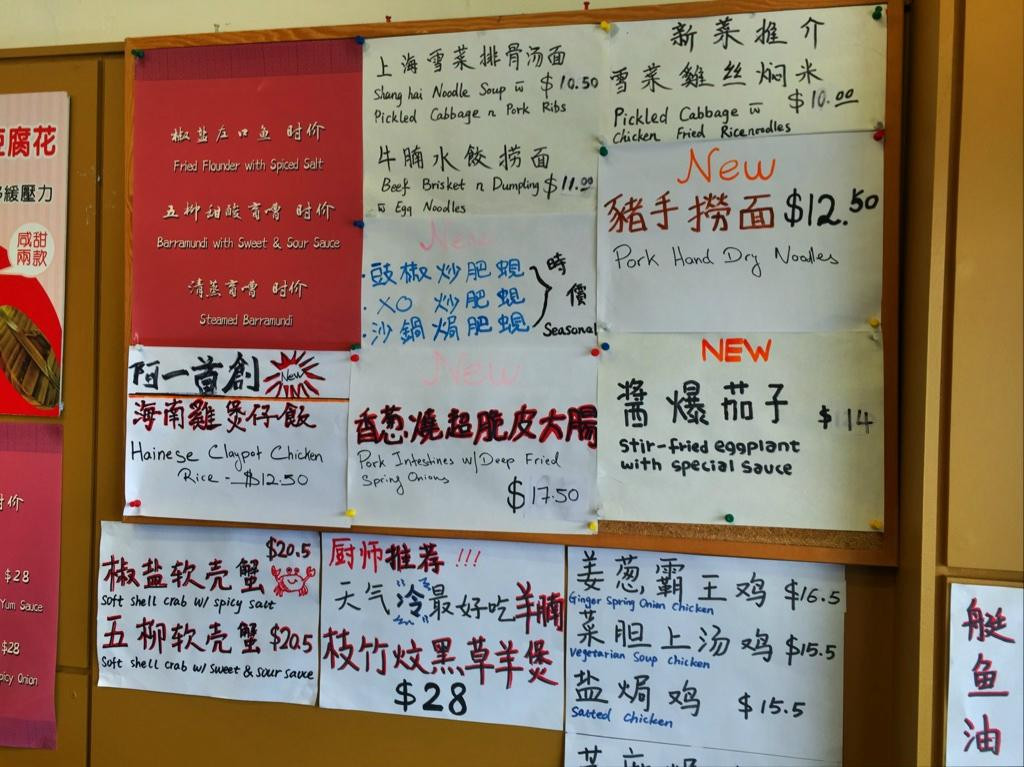 豆腐花
緩壓力
咸甜
兩款
时价
$28
Yum Sauce
$28
picy Onion
椒盐左口鱼 时价
Fried Flounder with Spiced Salt
五柳甜酸育嘈 时价
Barramundi with Sweet & Sour Sauce
清蒸育嘈 时价
Steamed Barramundi
上海雪菜排骨汤面
Shanghai Noodle Soup w $10.50
Pickled Cabbage n Pork Ribs
牛腩水餃捞面
Beef Brisket n Dumpling $11.00
w Egg Noodles
新菜推介
雪菜雞丝焖米
Pickled Cabbage w $10.00
Chicken Fried Ricenoodles
New
豉椒炒肥蜆
XO炒肥蜆
沙鍋焗肥蜆
時價
Seasonal
New
豬手撈面 $12.50
Pork Hand Dry Noodles
阿一首創 New
海南雞煲仔飯
Hainese Claypot Chicken
Rice - $12.50
New
香葱燒超脆皮大腸
Pork Intestines w/ Deep Fried
Spring Onions
$17.50
NEW
醬爆茄子 $14
Stir-fried eggplant
with special sauce
$20.5
椒盐软壳蟹
Soft shell crab w/ spicy salt
五柳软壳蟹 $20.5
Soft shell crab w/ sweet & sour sauce
厨师推荐!!!
天气冷最好吃羊腩
枝竹炆黑草羊煲
$28
姜葱霸王鸡 $16.5
Ginger Spring Onion Chicken
菜胆上汤鸡 $15.5
Vegetarian Soup Chicken
盐焗鸡 $15.5
Salted Chicken
艇
鱼
油